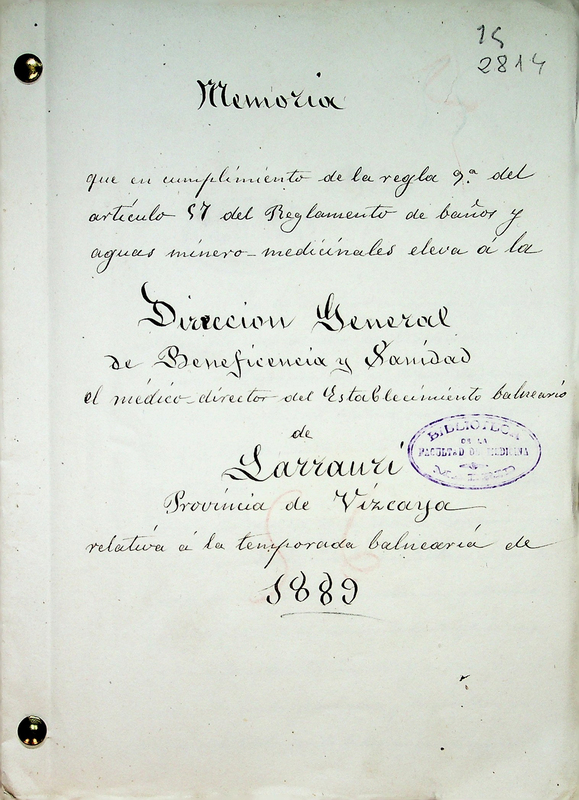 15
2814
Memoria
que en cumplimiento de la regla 9.ª del
artículo 57 del Reglamento de baños y
aguas minero-medicinales eleva á la
Direccion General
de Beneficencia y Sanidad
el médico-director del Establecimiento balneario
de
Larrauri
Provincia de Vizcaya
relativa á la temporada balnearia de
1889
BIBLIOTECA
DE LA
FACULTAD DE MEDICINA